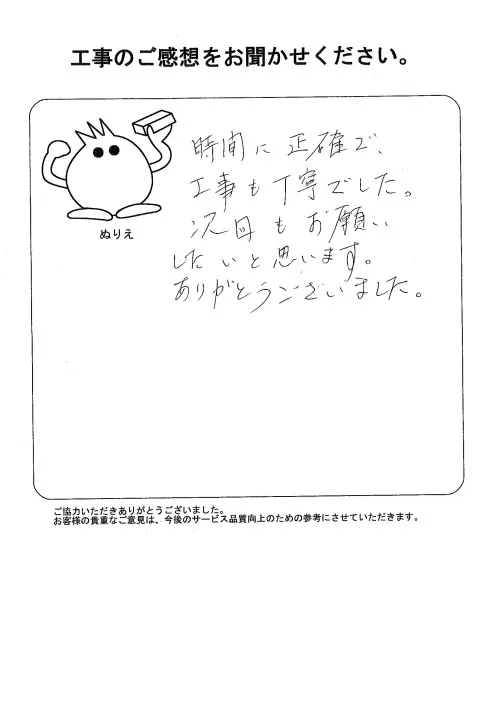 工事のご感想をお聞かせください。
ぬりえ
時間に正確で、
工事も丁寧でした。
次回もお願い
したいと思います。
ありがとうございました。
ご協力いただきありがとうございました。
お客様の貴重なご意見は、今後のサービス品質向上のための参考にさせていただきます。